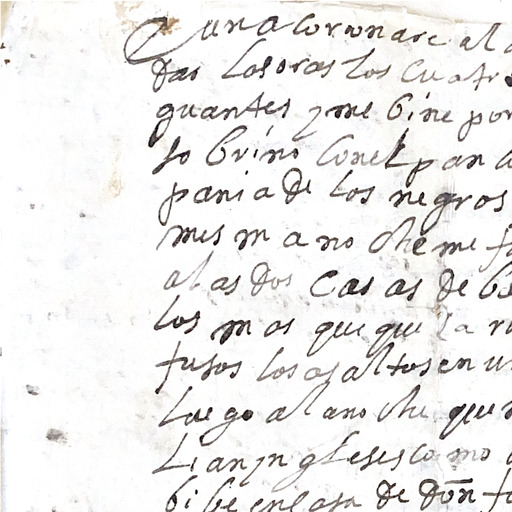 una corconare al
das los oras los cuatr
guantes y me bine por
so brino con el pan
pania de los negros
mes ma no che me
a las dos casas de
los mas que que la
tusos los asaltos en
luego al ano che que
lian yngleses como
bi be en casa de don